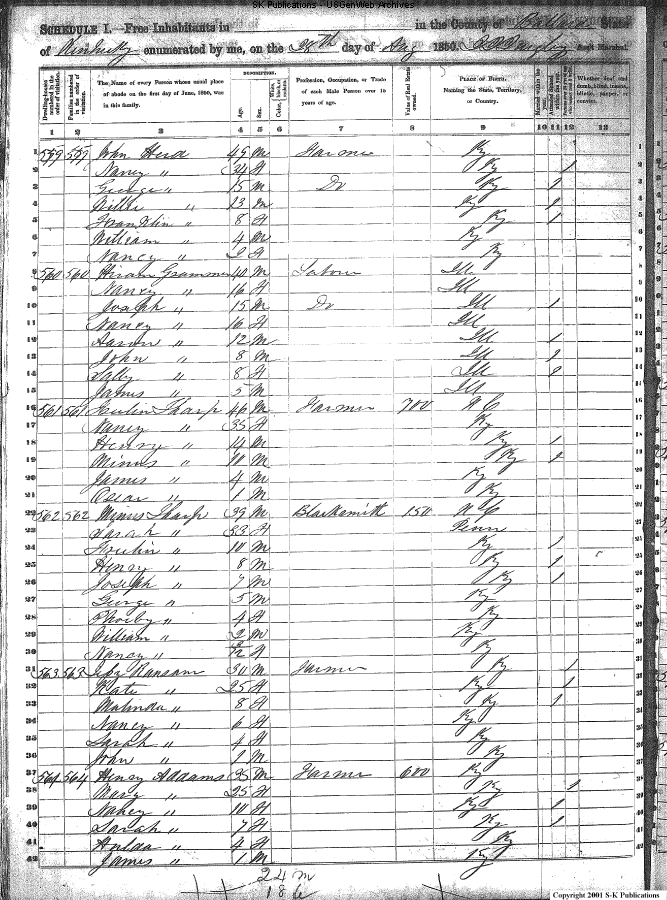 S-K Publications - USGenWeb Archives
SCHEDULE I.—Free Inhabitants in in the County of Ballard State
of Kentucky enumerated by me, on the 28th day of Aug 1850. Ass't Marshal.
Dwelling-houses numbered in the order of visitation.
Families numbered in the order of visitation.
The Name of every Person whose usual place of abode on the first day of June, 1850, was in this family.
DESCRIPTION.
Age.
Sex.
Color, White, black, or mulatto.
Profession, Occupation, or Trade of each Male Person over 15 years of age.
Value of Real Estate owned.
PLACE OF BIRTH. Naming the State, Territory, or Country.
Married within the year.
Attended School within the year.
Whether deaf and dumb, blind, insane, idiotic, pauper, or convict.
1 2 3 4 5 6 7 8 9 10 11 12 13
1 559 559 John Herd 49 M Farmer Ky 1
2 Nancy " 34 F Ky 1 2
3 George " 15 M Do Ky 1 3
4 Willis " 13 M Ky 1 4
5 Franklin " 8 F Ky 1 5
6 William " 4 M Ky 6
7 Nancy " 2 F Ky 7
8 560 560 Hiram Grammer 40 M Labour Ill 8
9 Nancy " 16 F Ill 9
10 Joseph " 15 M Do Ill 1 10
11 Nancy " 16 F Ill 11
12 Aaron " 12 M Ill 1 12
13 John " 8 M Ill 1 13
14 Sally " 8 F Ill 1 14
15 James " 5 M Ill 15
16 561 561 Sharp 46 M Farmer 700 N C 16
17 Nancy " 35 F Ky 17
18 Henry " 14 M Ky 1 18
19 Minus " 10 M Ky 1 19
20 James " 4 M Ky 20
21 Oscar " 1 M Ky 21
22 562 562 Minus Sharp 39 M Blacksmith 150 N C 22
23 Sarah " 33 F Penn 23
24 " 10 M Ky 1 24
25 Henry " 8 M Ky 1 25
26 Joseph " 7 M Ky 1 26
27 George " 5 M Ky 27
28 Phoeby " 4 F Ky 28
29 William " 2 M Ky 29
30 Nancy " F Ky 30
31 563 563 Ransom 30 M Farmer Ky 1 31
32 Kate " 25 F Ky 1 32
33 Malinda " 8 F Ky 1 33
34 Nancy " 6 F Ky 34
35 Sarah " 4 F Ky 35
36 John " 1 M Ky 36
37 564 564 Henry Addams 35 M Farmer 600 Ky 37
38 Mary " 25 F Ky 1 38
39 Nancy " 10 F Ky 1 39
40 Sarah " 7 F Ky 1 40
41 Hulda " 4 F Ky 41
42 James " 1 M Ky 42
24 M
18
Copyright 2001 S-K Publications